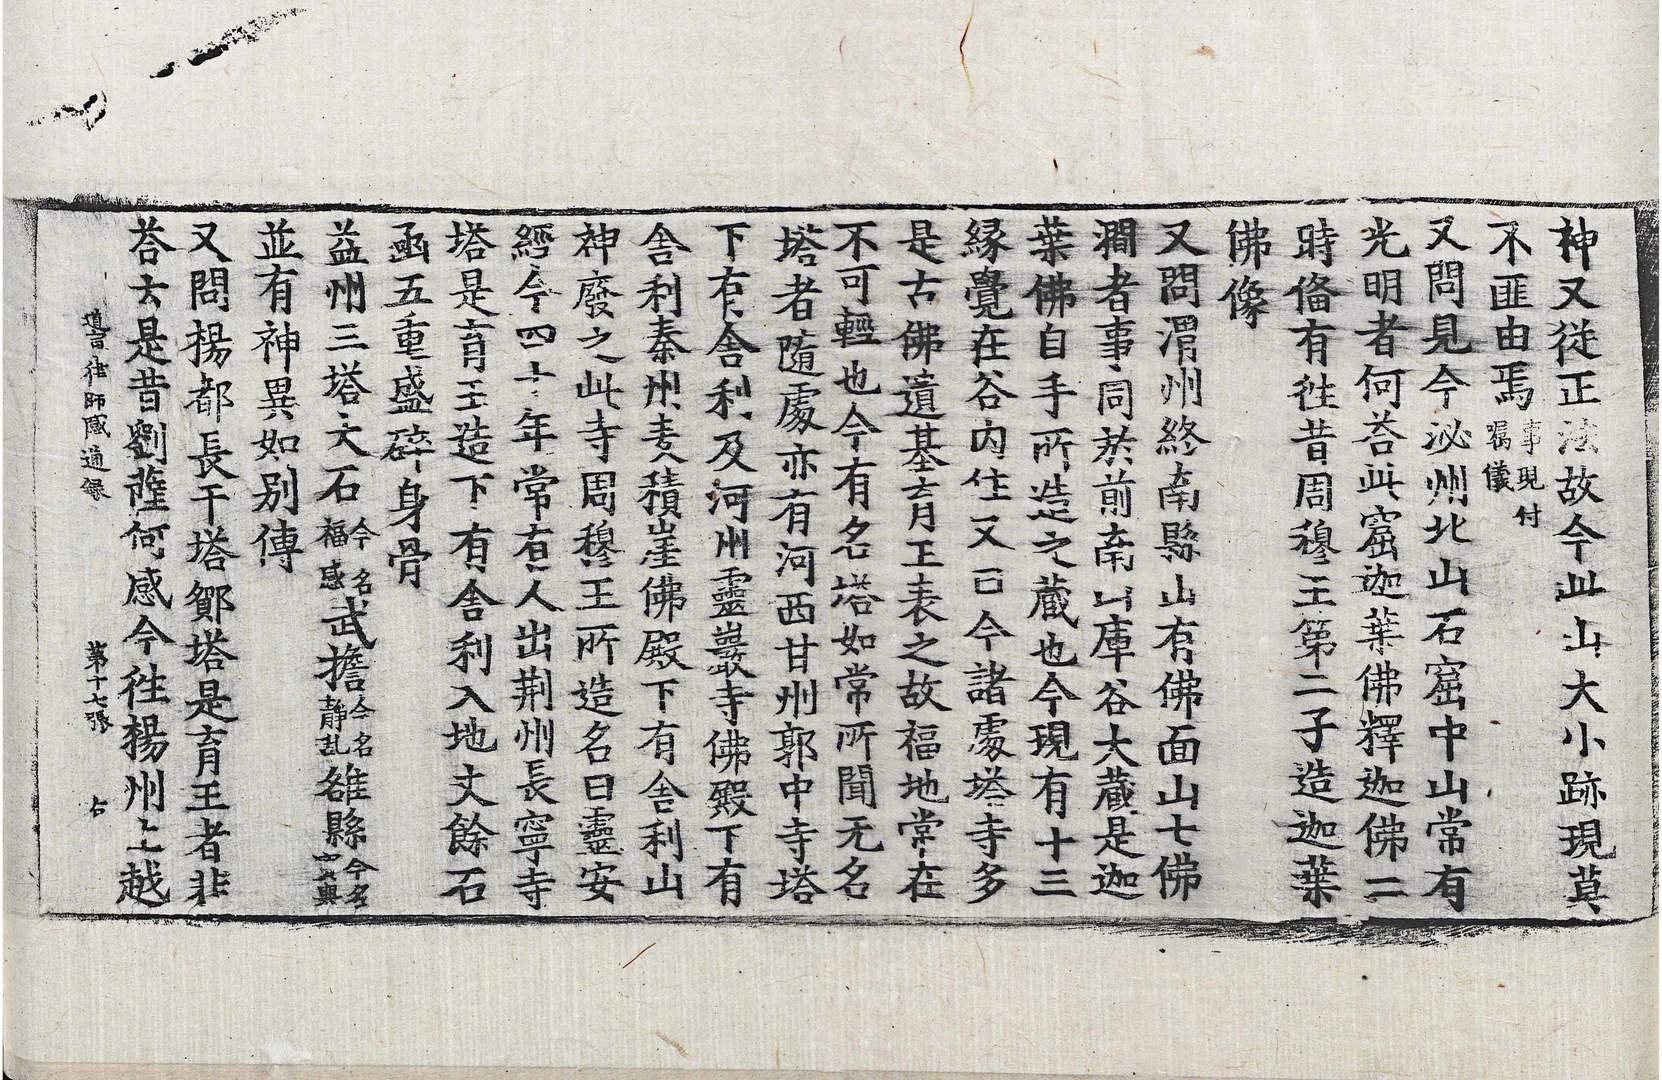 神又從正法故今此山大小跡現莫
不匪由焉事現付囑儀
又問見今泌州北山石窟中山常有
光明者何荅此窟迦葉佛釋迦佛二
時俻有徃昔周穆王第二子造迦葉
佛像
又問渭州終南縣山有佛面山七佛
澗者事同於前南山庫谷大藏是迦
葉佛自手所造之藏也今現有十三
緣覺在谷內住又曰今諸處塔寺多
是古佛遺基育王表之故福地常在
不可輕也今有名塔如常所聞无名
塔者隨處亦有河西甘州郭中寺塔
下有舍利及河州靈巖寺佛殿下有
舍利秦州麦積崖佛殿下有舍利山
神廢之此寺周穆王所造名曰靈安
經今四十年常有人出荆州長寧寺
塔是育王造下有舍利入地丈餘石
函五重盛碎身骨
益州三塔大石今名福感武擔今名靜乱雒縣今名
並有神異如別傳
又問揚都長干塔鄮塔是育王者非
荅云是昔劉薩何感今徃揚州上越
道宣律師感通録 第十七張 右